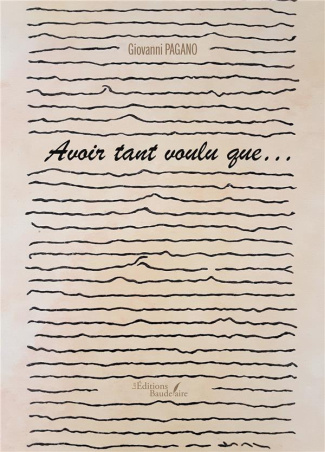 Giovanni PAGANO
Avoir tant voulu que...
Les Éditions
Baudelaire